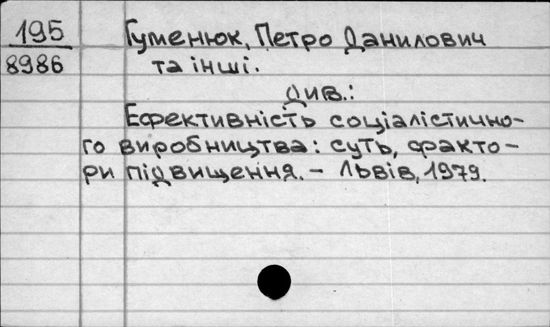 195
8986
Гуменюк, Петро Данилович
та інші.
див.:
Ефективність соціалістично-
го виробництва: суть, факто-
ри підвищення. – Львів, 1979.